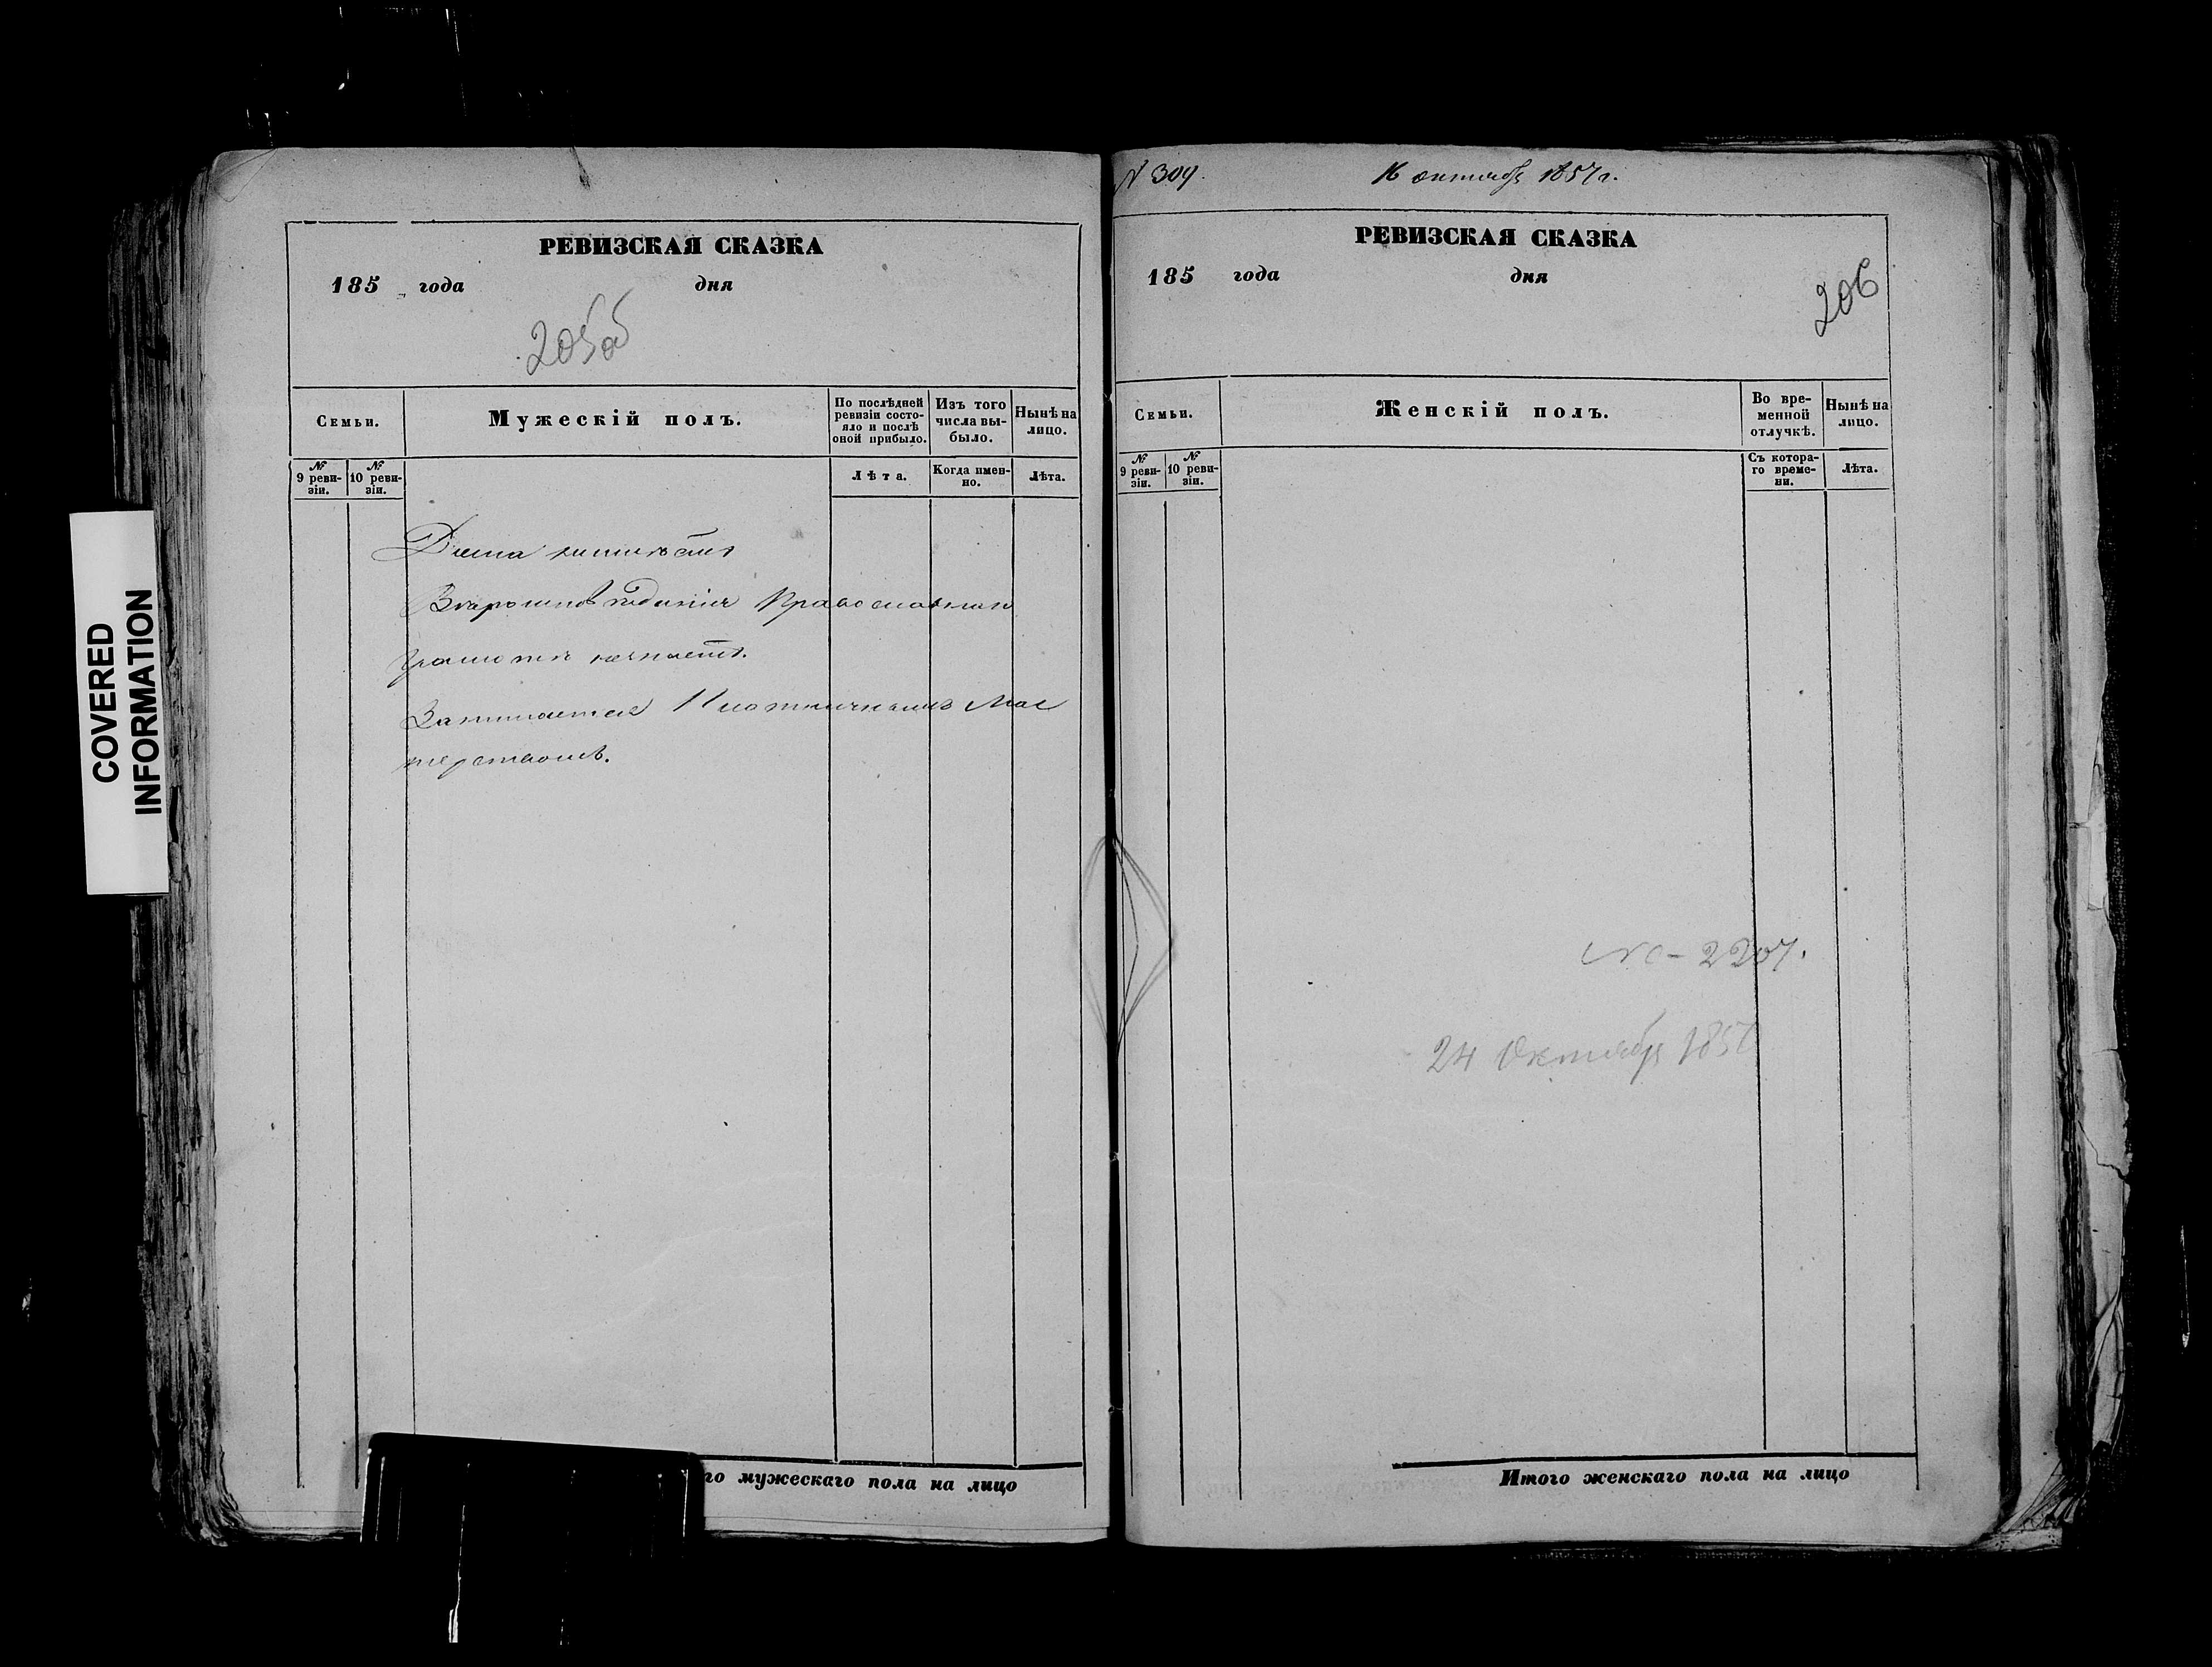 COVERED
INFORMATION
РЕВИЗСКАЯ СКАЗКА
185 года дня
205об
Семьи.
Мужескій полъ.
По послѣдней ревизіи состояло и послѣ оной прибыло.
Изъ того числа выбыло.
Нынѣ на лицо.
№ 9 ревизіи.
№ 10 ревизіи.
Лѣта.
Когда именно.
Лѣта.
Дома неимѣетъ
Вѣроисповѣданія Православнаго
Грамотѣ незнаетъ.
Занимается Плотничнымъ Мас
терствомъ.
го мужескаго пола на лицо
N 309. 16 октября 1857 г.
РЕВИЗСКАЯ СКАЗКА
185 года дня
206
Семьи.
Женскій полъ.
Во временной отлучкѣ.
Нынѣ на лицо.
№ 9 ревизіи.
№ 10 ревизіи.
Съ котораго времени.
Лѣта.
24 Октября 185
Итого женскаго пола на лицо